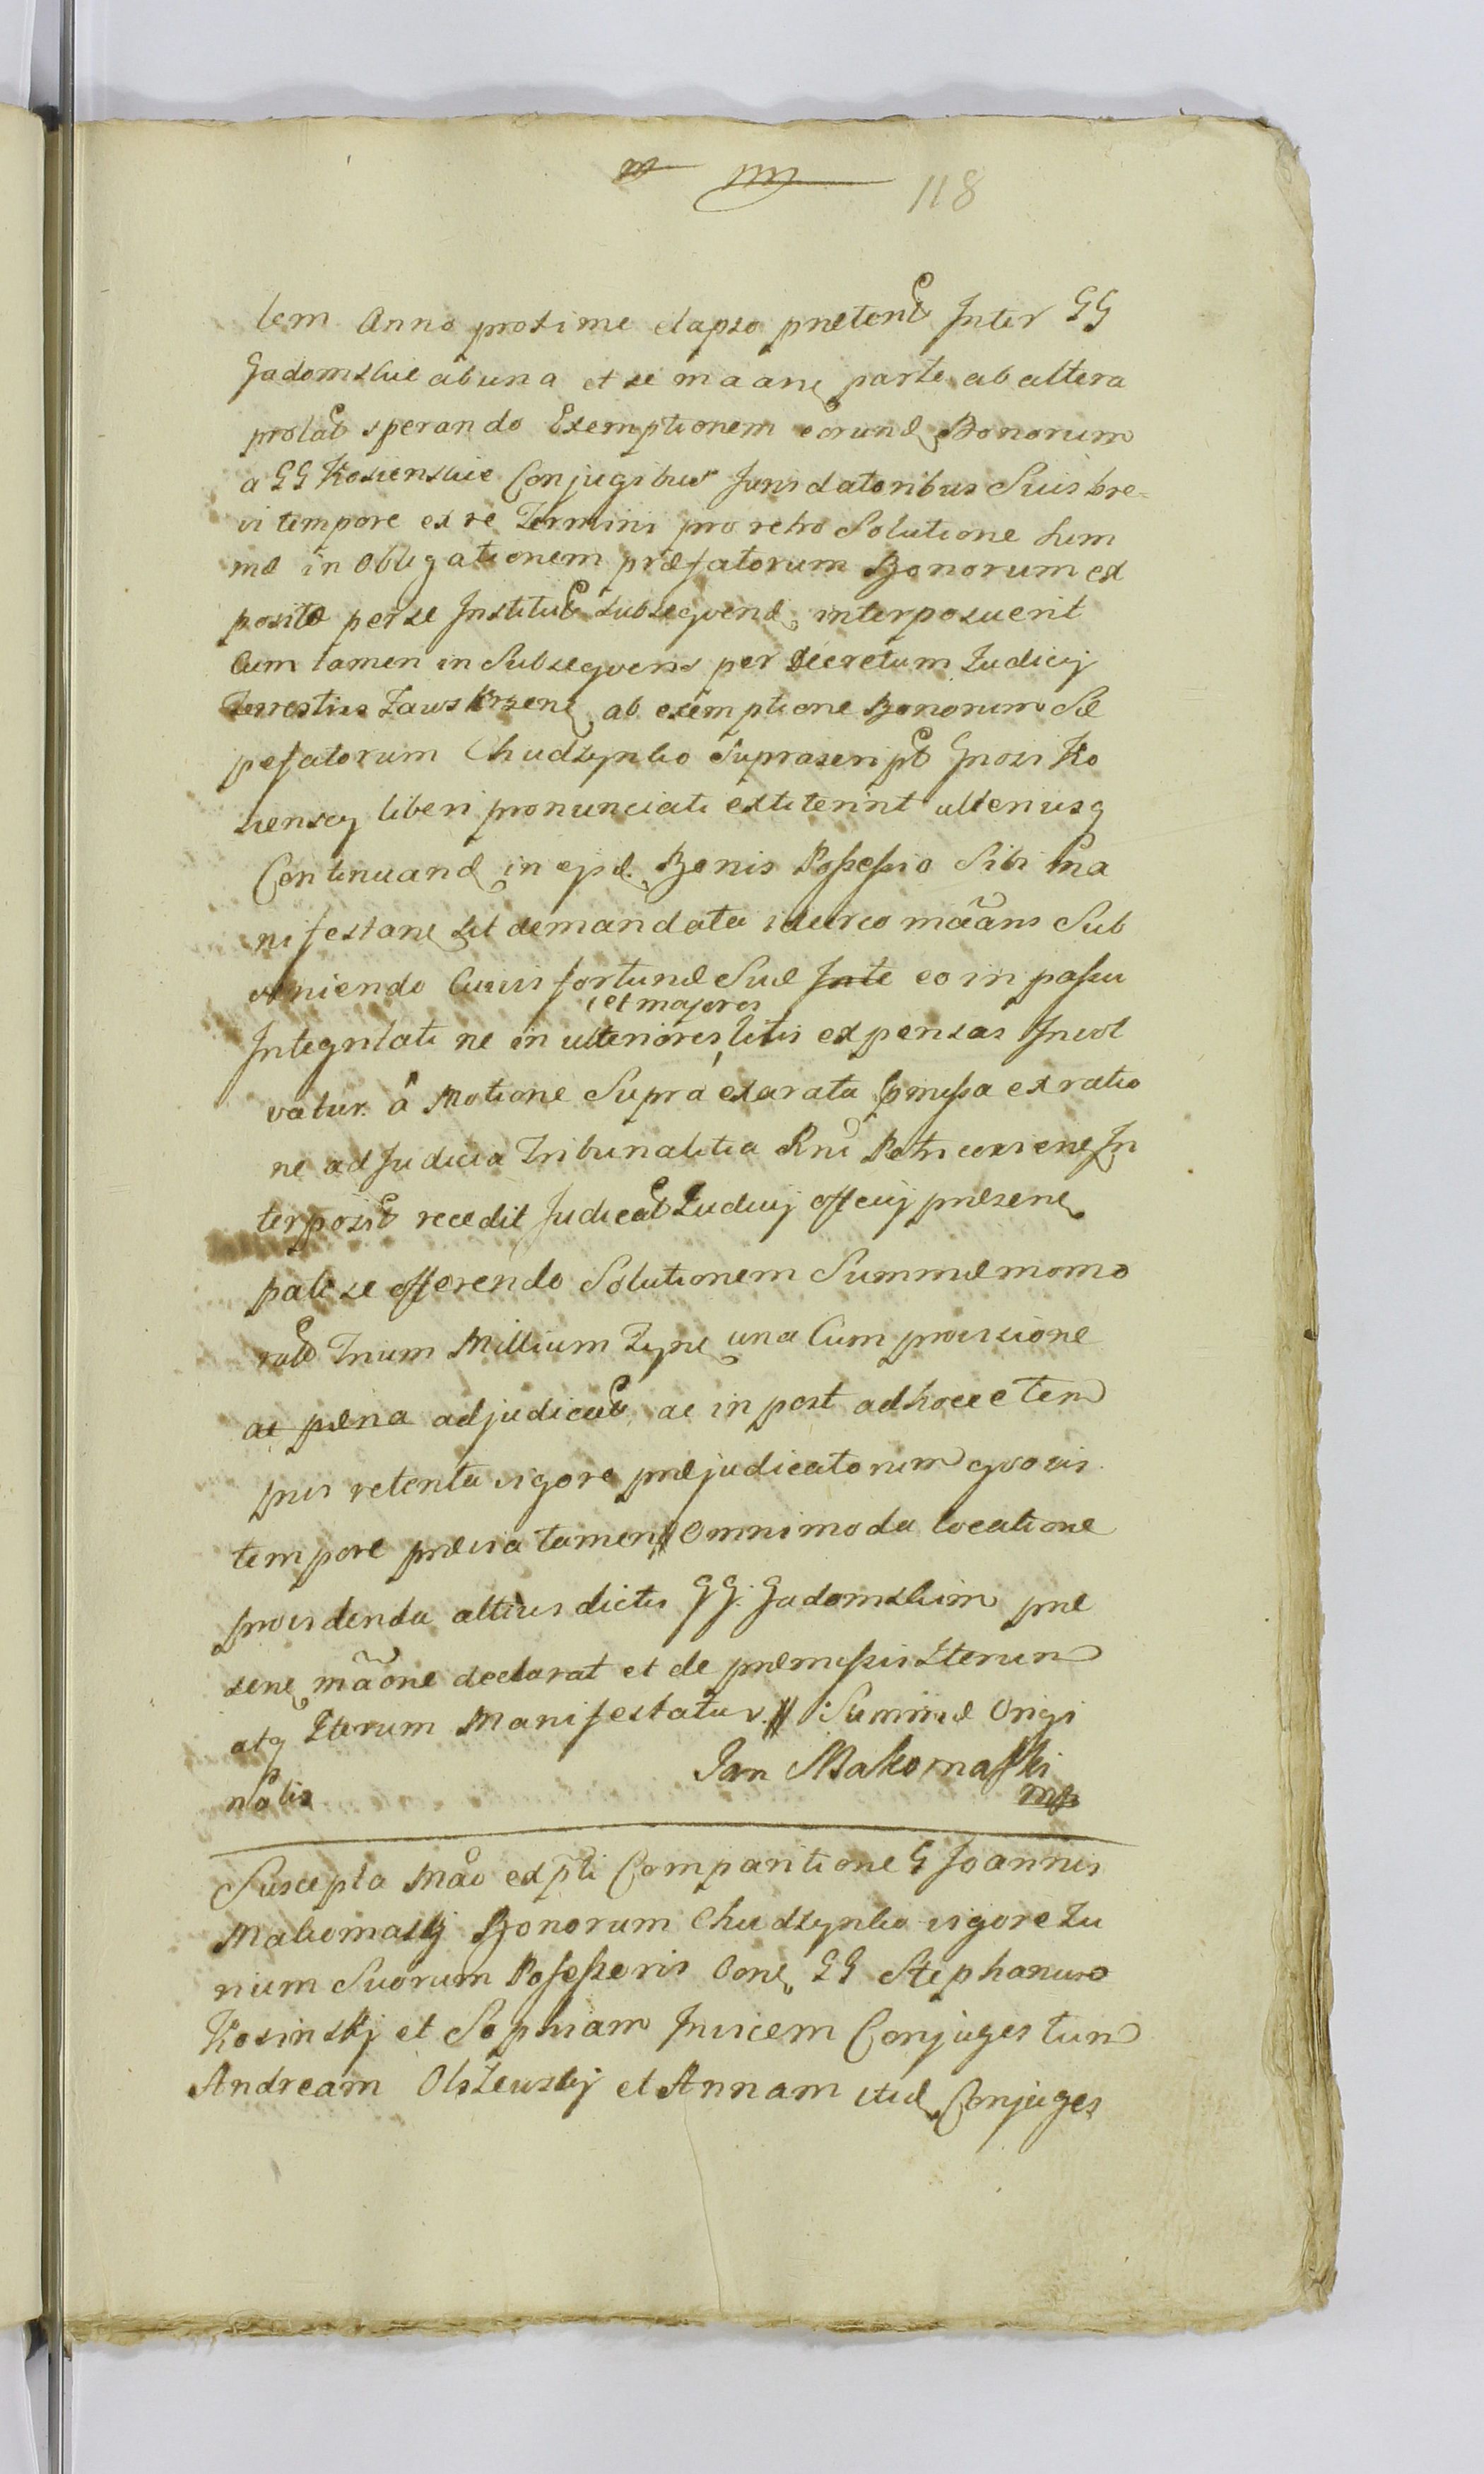 118
lem Anno proxime elapso præterit Inter GG
Gadomskie ab una et se maane parte ab altera
prolat sperando Exemptionem eorund Bonorum
a GG Kosienskie Conjugibus Juris datoribus Suis bre-
vi tempore ex re Termini pro retro Solutione Sum
mæ in Obligationem præfatorum Bonorum ex
positæ per se Institut subseqvend interposuerit
Cum tamen in Subseqvens per Decretum Judicij
Terrestris Zawskrzene ab exemptione Bonorum Sæ
pefatorum Chudzynko Suprascript Gnosi Ko
siensсy liberi pronunciati extiterint ulteriusq
Continuand in ejsd. Bonis Possessio Sibi Ma
nifestane sit demandata idcirco mãans Sub
veniendo Cuivis fortunæ Suæ Inte eo in passu
Integritati ne in ulteriores et majores litis expensas Invol
vatur. â Motione Supra exarata præmissa ex ratio
ne ad Judicia Tribunalitia Rni Petricoviene In
terposit recedit Judicat Judicij officij præsene
pati se offerendo Solutionem Summæ memo
ratæ Trium Millium Tynf una Cum provisione
ac pæna adjudicat, ac in post adhocce tem
pus retenta vigore præjudicatorum qvovis
tempore prævia tamen Omnimoda locatione
providenda altius dictis GG. Gadomskim præ
sene mãone declarat et de præmissis Iterum
atq Iterum Manifestatur. // Summæ Origi
nalis
Jan Makomaski
mp
Suscepta Mão ex pti Comparitione G Joannis
Makomaskj Bonorum Chudzynko vigore Iu
rium Suorum Possessoris Cone GG Stephanum
Kosinskj et Sophiam Invicem Conjuges tum
Andream Olszewskj et Annam itid Conjuges